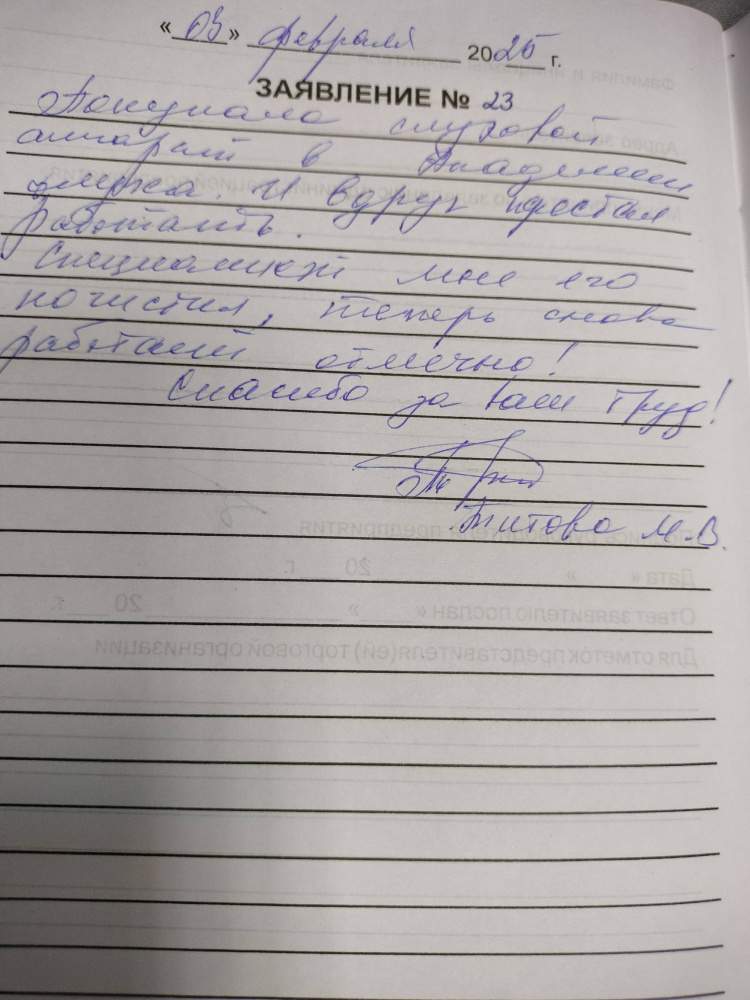 « 03 » февраля 2025 г.
ЗАЯВЛЕНИЕ № 23
Покупала слуховой
аппарат в Академии
слуха. И вдруг престал
работать.
Специалист мне его
почистил, теперь снова
работает отлично!
Спасибо за Ваш труд!
Титова М.В.